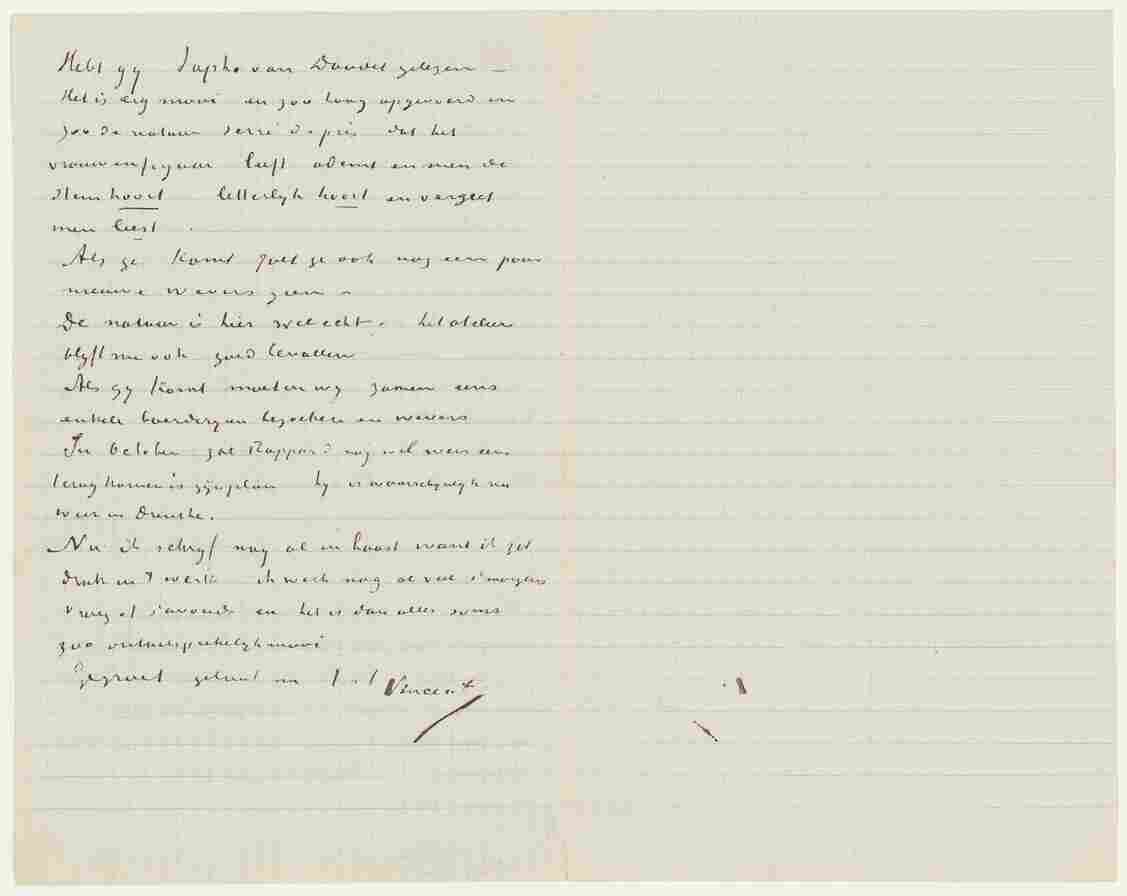 Hebt gy Sapho van Daudet gelezen –
Het is erg mooi en zoo hoog opgevoerd en
zoo de natuur serré de près dat het
vrouwenfiguur leeft ademt en men de
stem hoort letterlyk hoort en vergeet
men leest .
Als ge komt zult ge ook nog een paar
nieuwe wevers zien –
De natuur is hier wel echt . het atelier
blyft me ook goed bevallen
Als gy komt moeten wy zamen eens
enkele boerderyen bezoeken en wevers
In October zal Rappard nog wel weer eens
terug komen is zyn plan hy is waarschynlyk nu
weer in Drenthe.
Nu ik schryf nog al in haast want ik zit
druk in 't werk ik werk nog al veel s'morgens
vroeg of s'avonds en het is dan alles soms
zoo onuitsprekelyk mooi
Gegroet geluk en t.à.t. Vincent